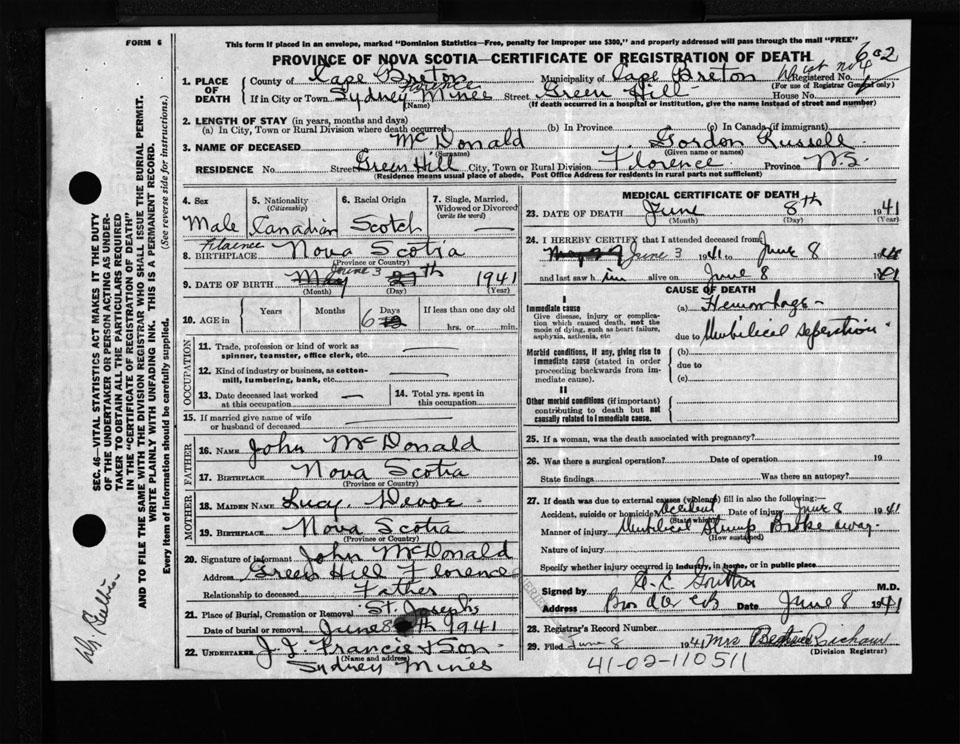 FORM 6
This form if placed in an envelope, marked "Dominion Statistics—Free, penalty for improper use $300," and properly addressed will pass through the mail "FREE"
PROVINCE OF NOVA SCOTIA—CERTIFICATE OF REGISTRATION OF DEATH
602
1. PLACE OF DEATH County of Cape Breton Municipality of Cape Breton Registered No.
(For use of Registrar General only)
Florence
If in City or Town Sydney Mines Street Green Hill House No.
(Name) (If death occurred in a hospital or institution, give the name instead of street and number)
2. LENGTH OF STAY (in years, months and days)
(a) In City, Town or Rural Division where death occurred (b) In Province (c) In Canada (if immigrant)
3. NAME OF DECEASED McDonald Gordon Russell
(Surname) (Given name or names)
RESIDENCE No. Street Green Hill City, Town or Rural Division Florence Province N.S.
(Residence means usual place of abode. Post Office Address for residents in rural parts not sufficient)
4. Sex Male
5. Nationality (Citizenship) Canadian
6. Racial Origin Scotch
7. Single, Married, Widowed or Divorced (write the word) —
8. BIRTHPLACE Florence Nova Scotia
(Province or Country)
9. DATE OF BIRTH May June 3 27th 1941
(Month) (Day) (Year)
10. AGE in Years Months Days 6 12 If less than one day old hrs. or min.
OCCUPATION
11. Trade, profession or kind of work as spinner, teamster, office clerk, etc. —
12. Kind of industry or business, as cotton-mill, lumbering, bank, etc. —
13. Date deceased last worked at this occupation —
14. Total yrs. spent in this occupation
15. If married give name of wife or husband of deceased —
FATHER
16. NAME John McDonald
17. BIRTHPLACE Nova Scotia
(Province or Country)
MOTHER
18. MAIDEN NAME Lucy Devoe
19. BIRTHPLACE Nova Scotia
(Province or Country)
20. Signature of informant John McDonald
Address Green Hill Florence
Relationship to deceased Father
21. Place of Burial, Cremation or Removal St. Josephs
Date of burial or removal June 8 th 1941
22. UNDERTAKER J. J. Francis & Son
(Name and address)
Sydney Mines
MEDICAL CERTIFICATE OF DEATH
23. DATE OF DEATH June 8th 1941
(Month) (Day) (Year)
24. I HEREBY CERTIFY that I attended deceased from
June 3 1941 to June 8 19
and last saw h im alive on June 8 1941
CAUSE OF DEATH
I
Immediate cause
Give disease, injury or complication which caused death, not the mode of dying, such as heart failure, asphyxia, asthenia, etc
(a) Hemorhage
due to Umbilical seperation
Morbid conditions, if any, giving rise to immediate cause (stated in order proceeding backwards from immediate cause).
(b)
due to
(c)
II
Other morbid conditions (if important) contributing to death but not causally related to immediate cause.
25. If a woman, was the death associated with pregnancy?
26. Was there a surgical operation? Date of operation 19
State findings Was there an autopsy?
27. If death was due to external causes (violence) fill in also the following:—
Accident, suicide or homicide Accident Date of injury June 8 1941
(State which)
Manner of injury Umbilical Stump Broke away
(How sustained)
Nature of injury
Specify whether injury occurred in industry, in home, or in public place
Signed by M.D.
Address Date June 8 1941
28. Registrar's Record Number
29. Filed June 8 1941 Mrs
(Division Registrar)
41-02-110511
SEC. 46—VITAL STATISTICS ACT MAKES IT THE DUTY OF THE UNDERTAKER OR PERSON ACTING AS UNDERTAKER TO OBTAIN ALL THE PARTICULARS REQUIRED IN THE "CERTIFICATE OF REGISTRATION OF DEATH" AND TO FILE THE SAME WITH THE DIVISION REGISTRAR WHO SHALL ISSUE THE BURIAL PERMIT.
WRITE PLAINLY WITH UNFADING INK. THIS IS A PERMANENT RECORD.
Every item of information should be carefully supplied. (See reverse side for instructions.)